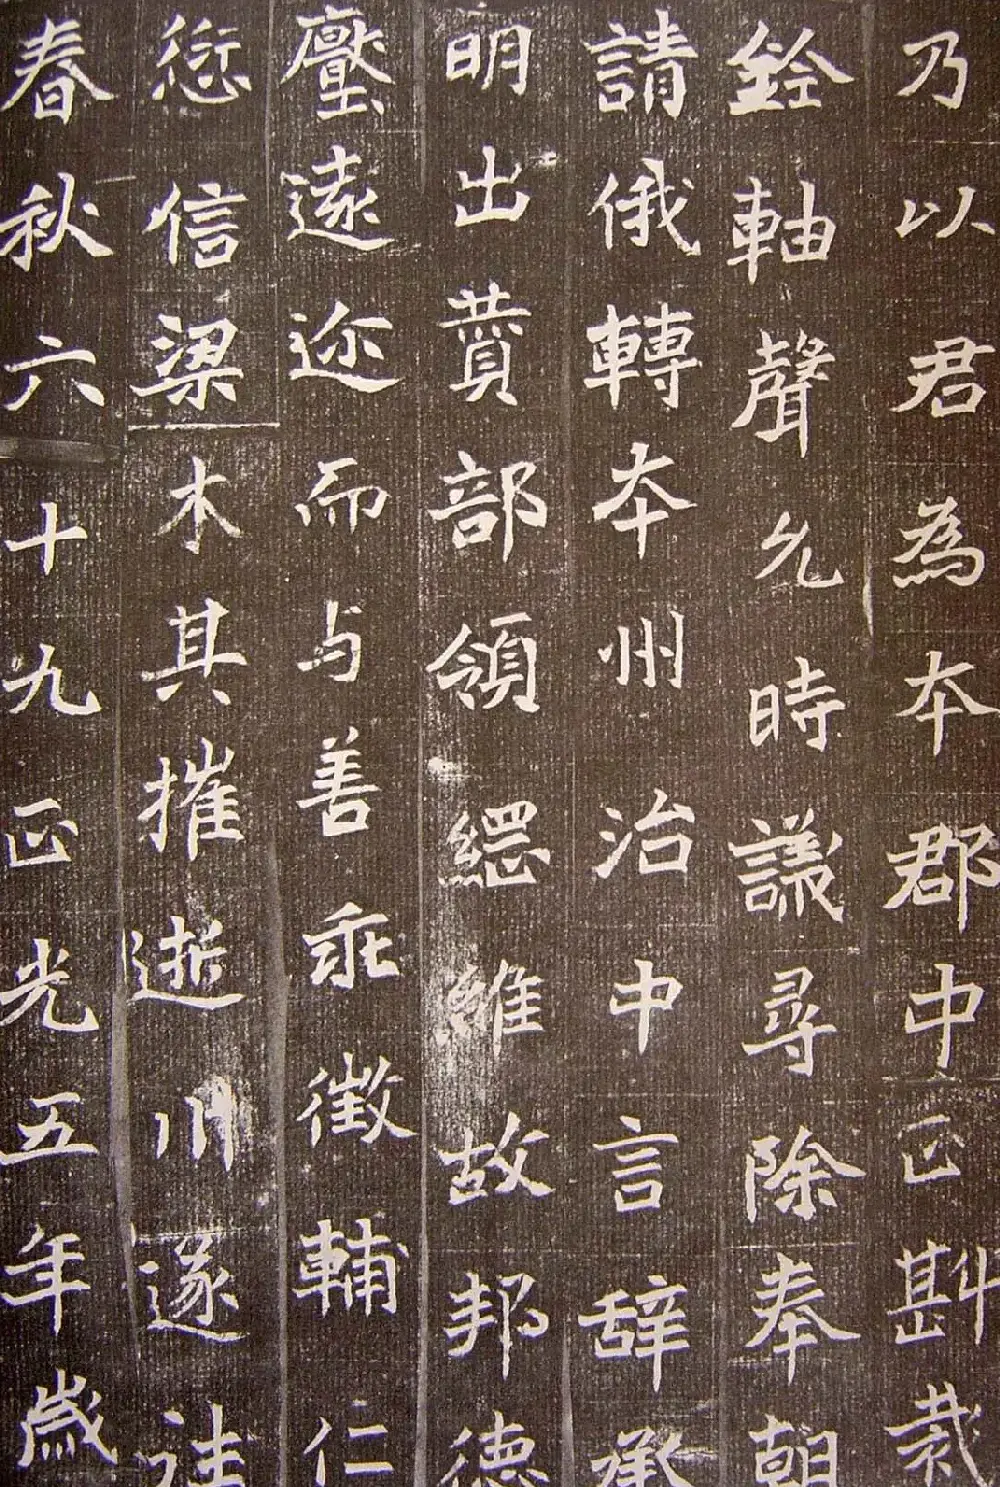 乃以君為本郡中正斟裁
銓軸聲允時議尋除奉朝
請俄轉本州治中言辞承
明出賛部領緦維故邦德
壓遠迩而与善乖徵輔仁
愆信梁木其摧逝川遂往
春秋六十九正光五年歲